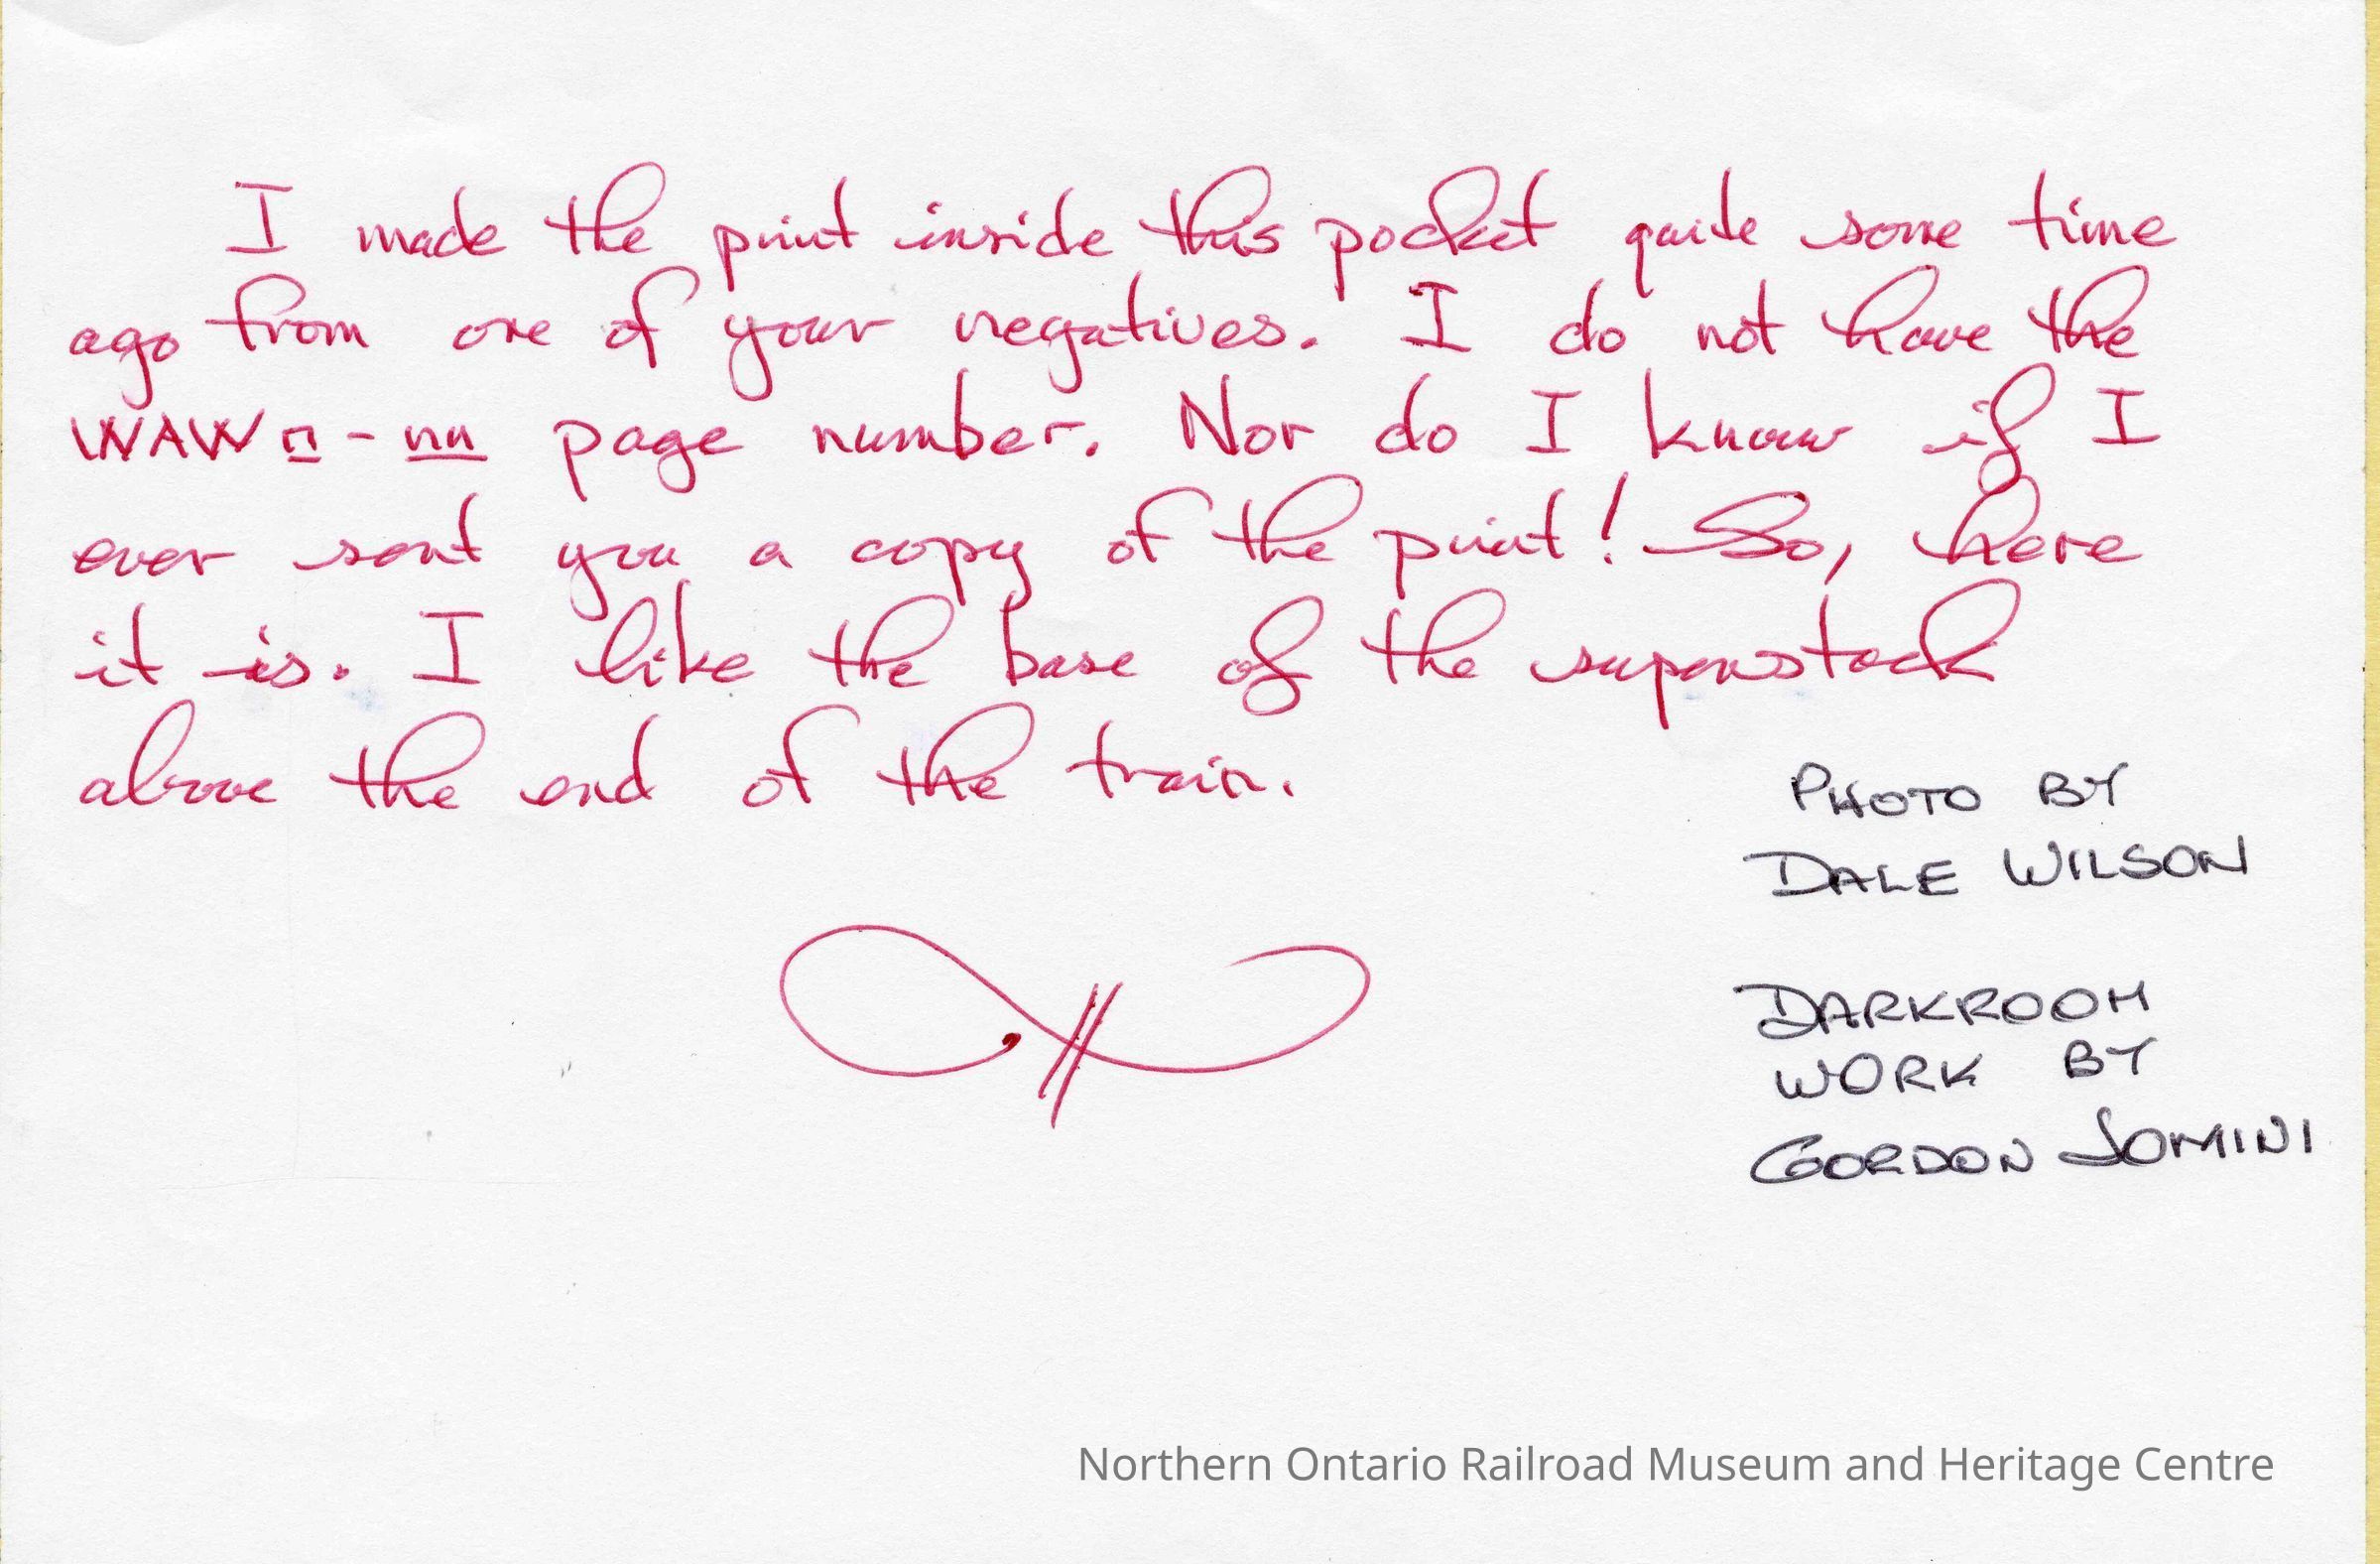 I made the print inside this pocket quite some time
ago from one of your negatives. I do not have the
WAW n - nn page number. Nor do I know if I
ever sent you a copy of the print! So, here
it is. I like the base of the superstack
above the end of the train.
PHOTO BY
DALE WILSON
DARKROOM
WORK BY
GORDON JOMINI
Northern Ontario Railroad Museum and Heritage Centre